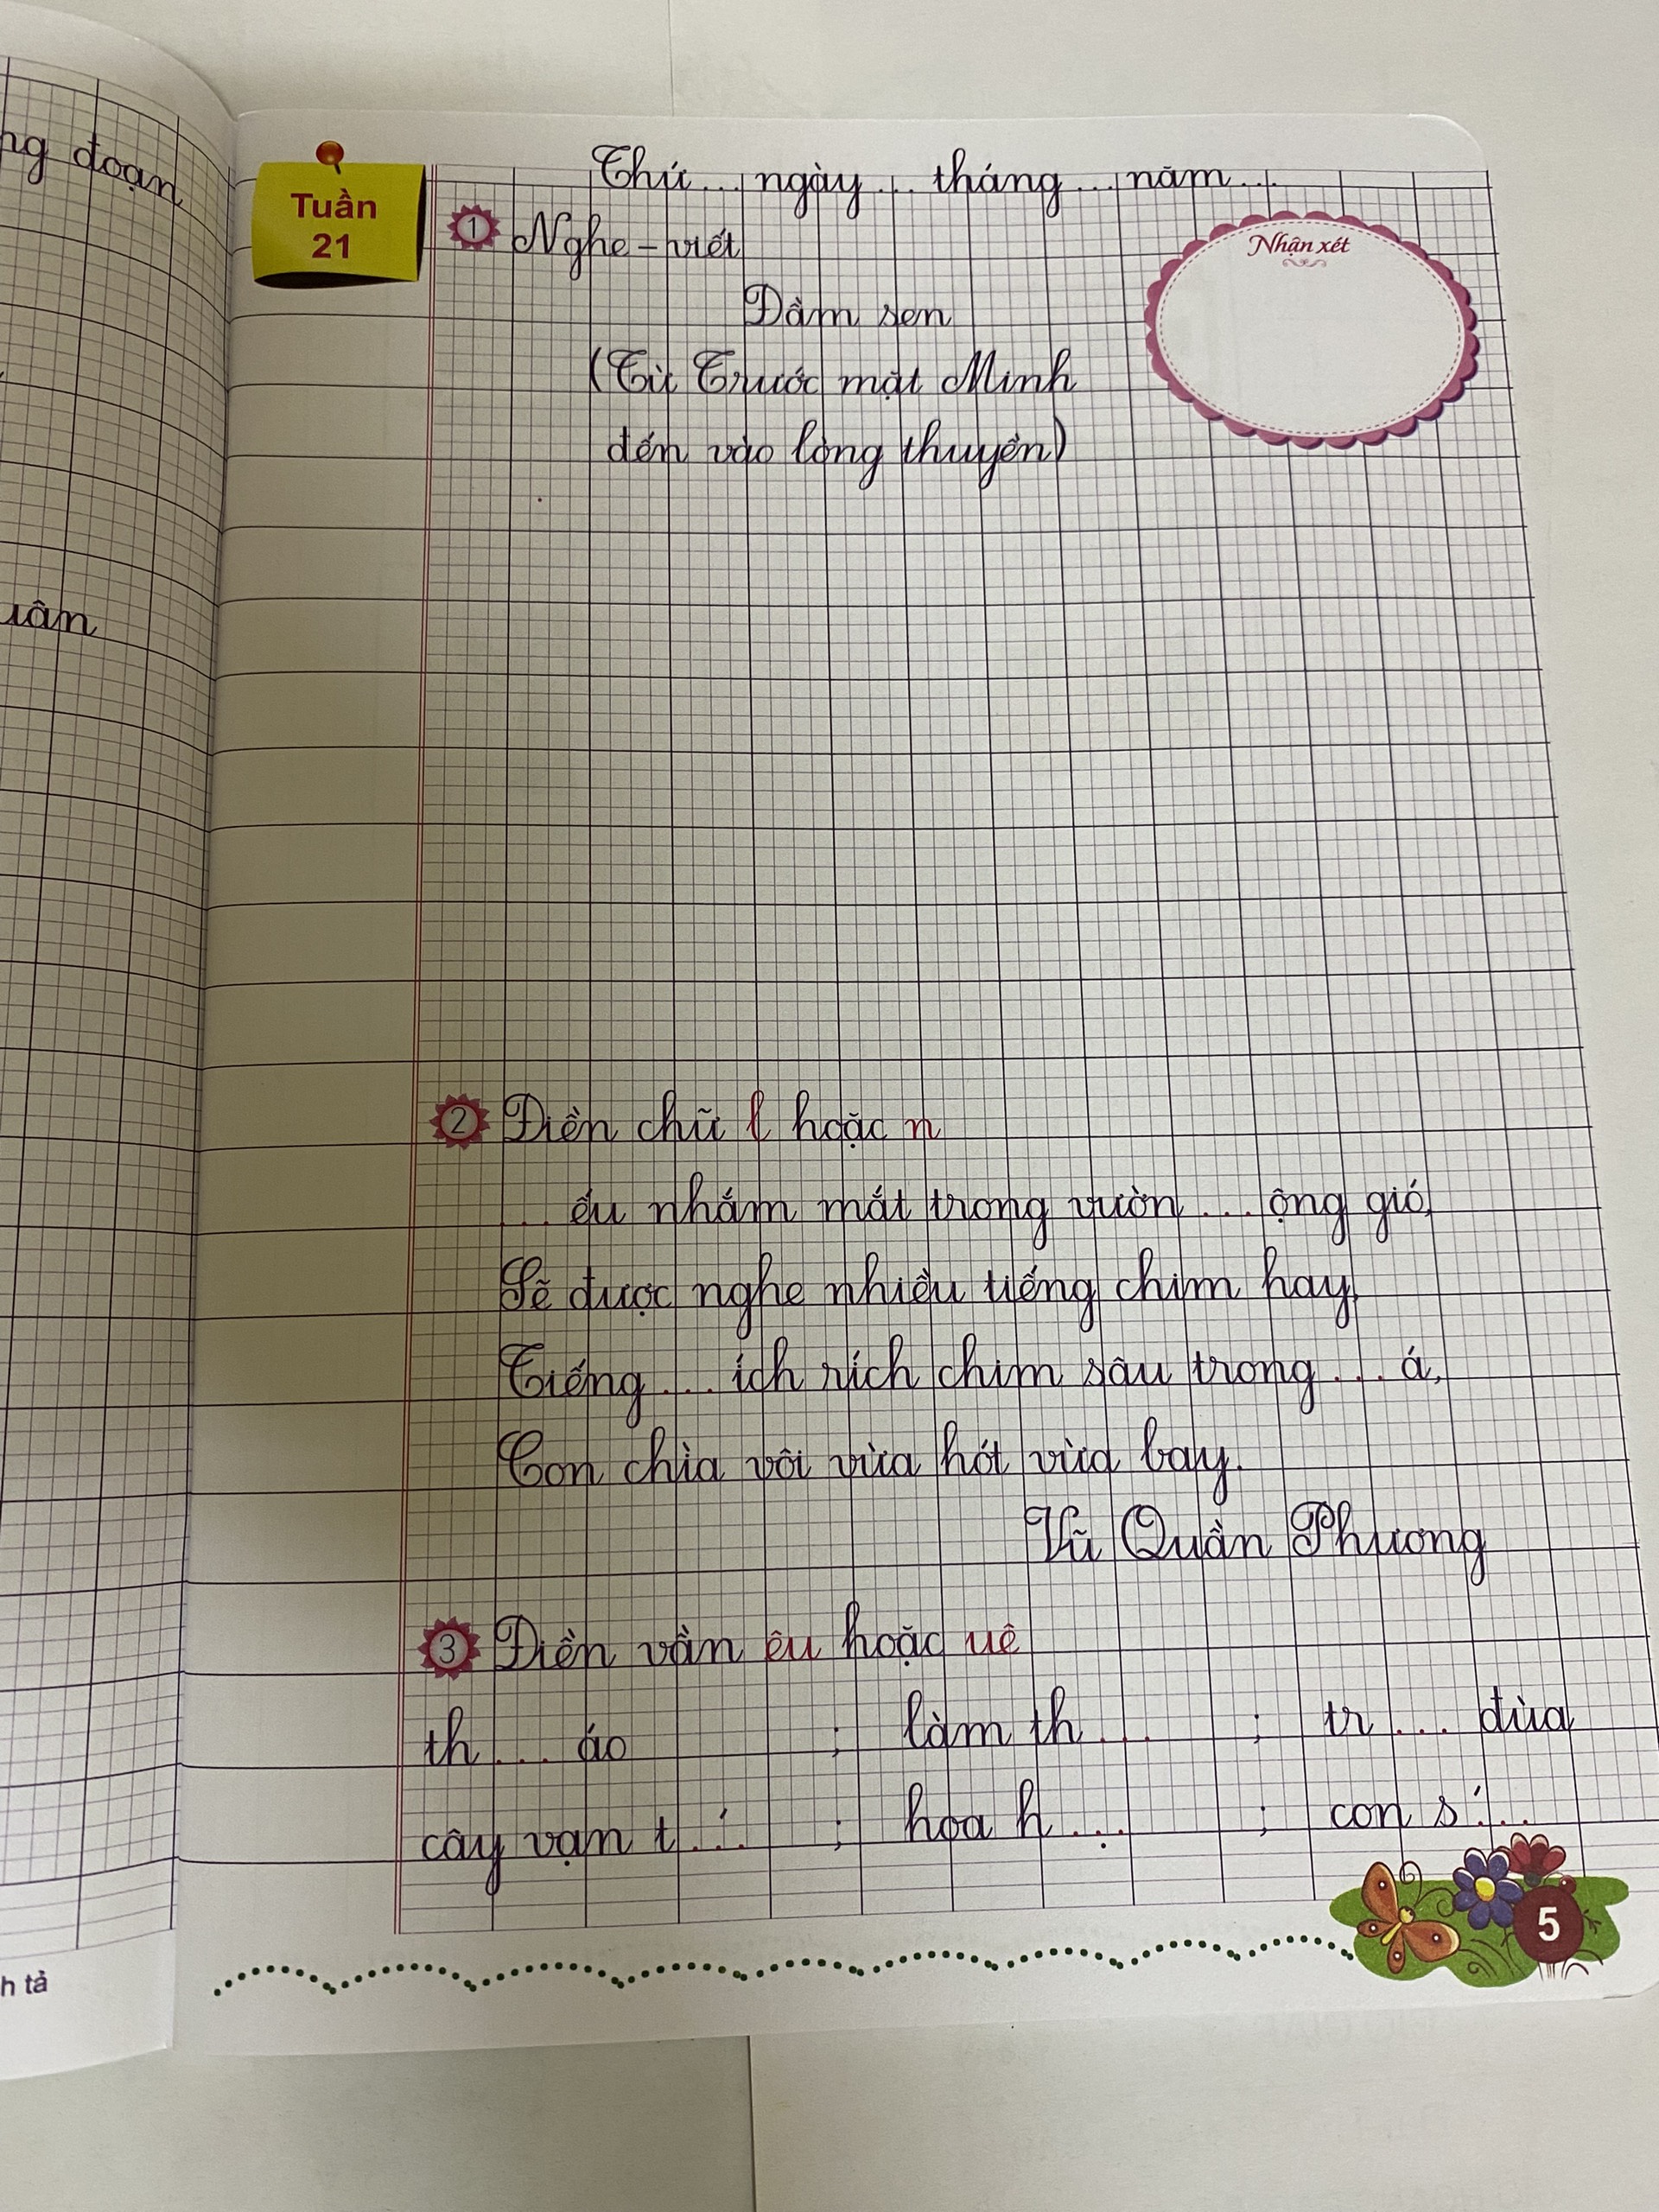 ng đoạn
uân
h tả
Tuần
21
Thứ... ngày... tháng... năm...
Nhận xét
1 Nghe – viết
Đầm sen
(Từ Trước mặt Minh
đến vào lòng thuyền)
2 Điền chữ l hoặc n
... ếu nhắm mắt trong vườn ... ộng gió,
Sẽ được nghe nhiều tiếng chim hay,
Tiếng ... ích rích chim sâu trong ... á,
Con chìa vôi vừa hót vừa bay.
Vũ Quần Phương
3 Điền vần êu hoặc uê
th ... áo ; làm th ... ; tr ... đùa
cây vạn t ...́ ; hoa h ...̣ ; con s ́...
5